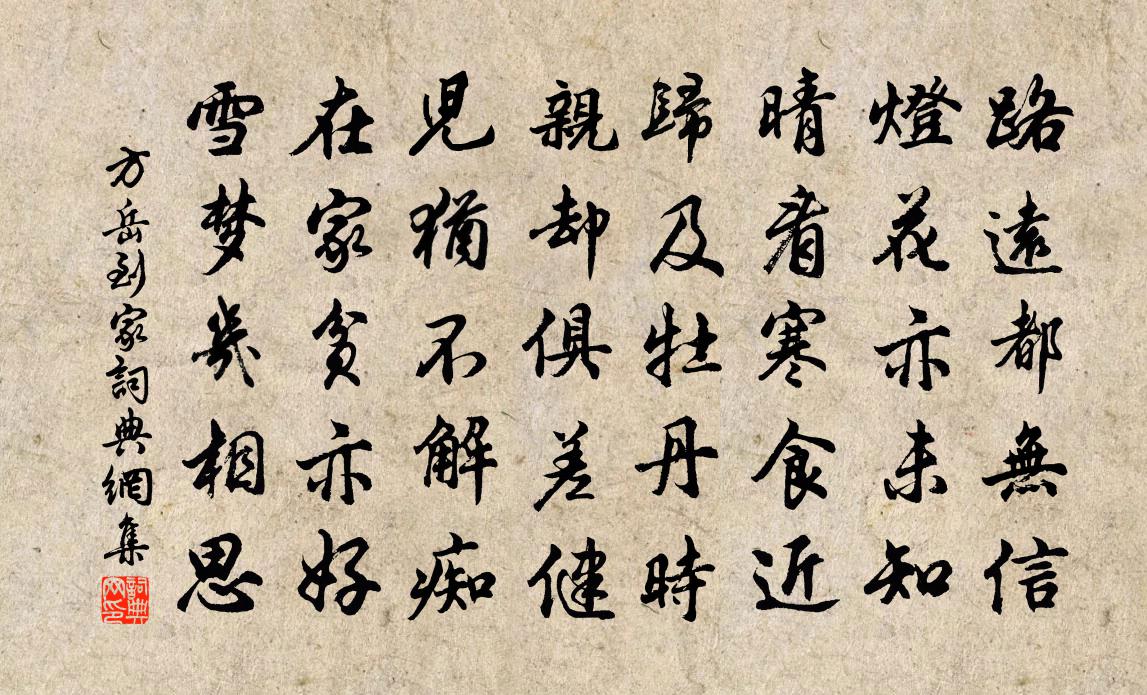 路遠都無信
燈花亦未知
晴看寒食近
歸及牡丹時
親却俱差健
兒猶不解痴
在家貧亦好
雪梦幾相思
方岳到家詞典網集
詞典网印